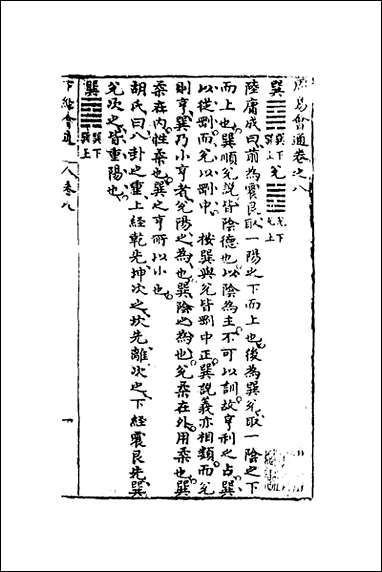 周易會通卷之八
巽 巽下巽上 兌 兌下兌上
陸庸成曰前為震艮取一陽之下而上也後為巽兌取一陰之下
而上也巽順兌說皆陰德也以陰為主不可以訓故亨利之占巽
以從剛而兌以剛中 按巽與兌皆剛中正巽說義亦相類而兌
則亨巽乃小亨者兌陽之為也巽陰之為也兌柔在外用柔也巽
柔在內性柔也巽之亨所以小也
胡氏曰八卦之重上經乾先坤次之坎先離次之下經震艮先巽
兌次之皆重陽也
巽 巽下巽上
下經會通 卷八 一